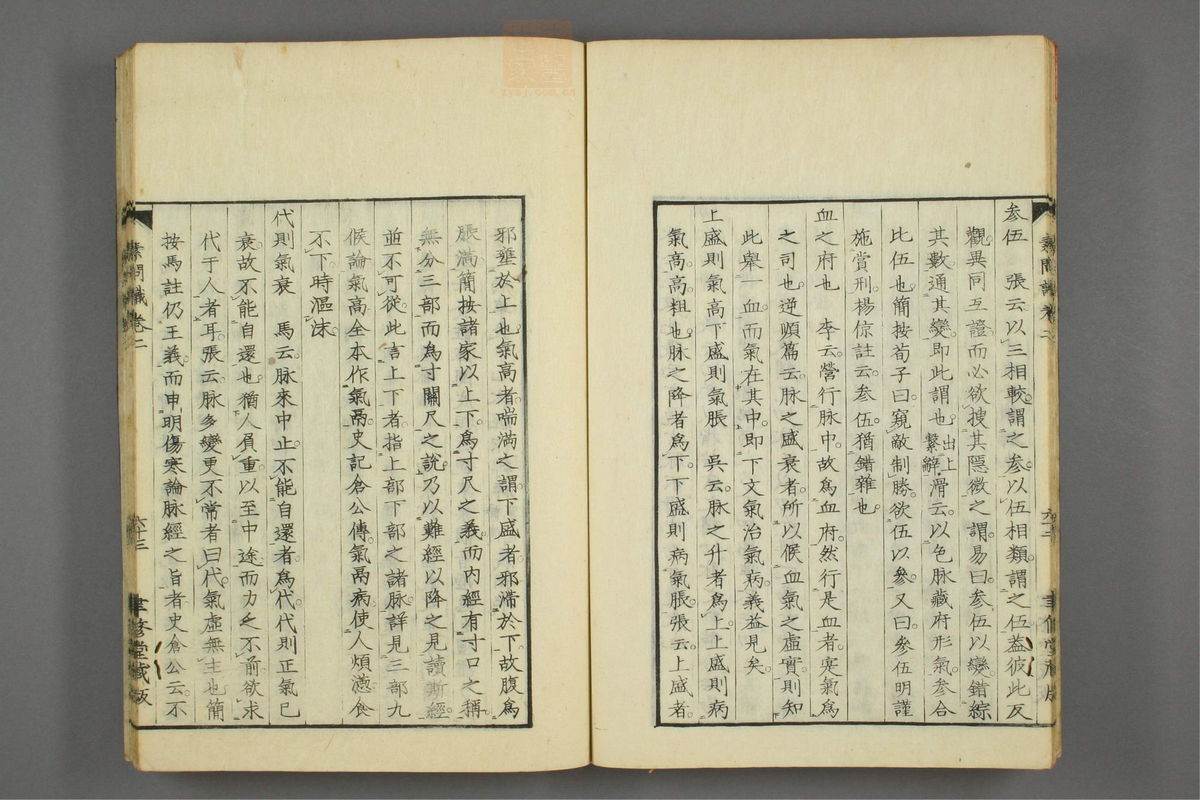 参伍　張云以三相較謂之参以伍相類謂之伍蓋彼此反
觀異同互證而必欲搜其隱微之謂易曰参伍以變錯綜
其數通其變即此謂也出上繫辭滑云以色脉藏府形氣参合
比伍也簡按荀子曰窺敵制勝欲伍以參又曰參伍明謹
施賞刑楊倞註云参伍猶錯雜也
血之府也　李云營行脉中故爲血府然行是血者寔氣爲
之司也逆順篇云脉之盛衰者所以候血氣之虛實則知
此舉一血而氣在其中即下文氣治氣病義益見矣
上盛則氣高下盛則氣脹　吳云脉之升者爲上上盛則病
氣高高粗也脉之降者爲下下盛則病氣脹張云上盛者
邪壅於上也氣高者喘滿之謂下盛者邪滯於下故腹爲
脹滿簡按諸家以上下爲寸尺之義而内經有寸口之稱
無分三部而爲寸關尺之說乃以難經以降之見讀斯經
並不可從此言上下者指上部下部之諸脉詳見三部九
候論氣高全本作氣鬲史記倉公傳氣鬲病使人煩懣食
不下時漚沫
代則氣衰　馬云脉來中止不能自還者爲代代則正氣已
衰故不能自還也猶人負重以至中途而力乏不前欲求
代于人者耳張云脉多變更不常者曰代氣虛無主也簡
按馬註仍王義而申明傷寒論脉經之旨者史倉公云不
素問識卷二
六十三
聿修堂藏版